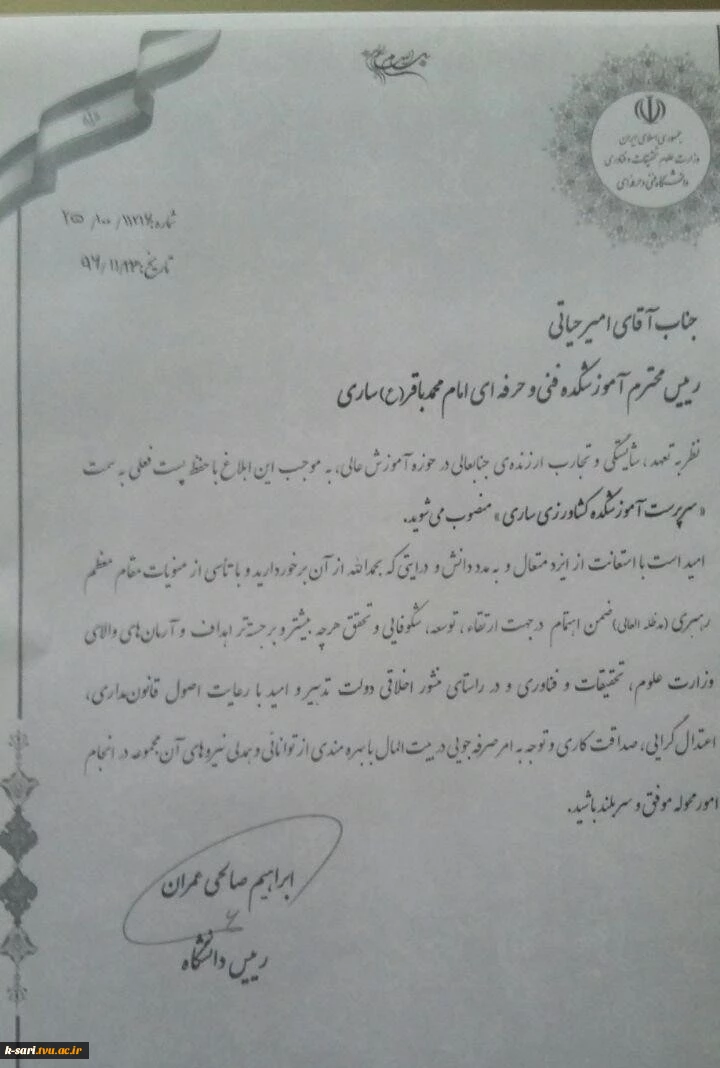 جمهوری اسلامی ایران
وزارت علوم تحقیقات و فناوری
دانشگاه فنی و حرفه‌ای
شماره:
تاریخ: ۹۶/۱۱/۲۳
جناب آقای امیر حیاتی
رییس محترم آموزشکده فنی و حرفه ای امام محمد باقر(ع) ساری
نظر به تعهد، شایستگی و تجارب ارزنده‌ی جنابعالی در حوزه آموزش عالی، به موجب این ابلاغ با حفظ پست فعلی به سمت
«سرپرست آموزشکده کشاورزی ساری» منصوب می‌شوید.
امید است با استعانت از ایزد متعال و به مدد دانش و درایتی که بحمدالله از آن برخوردارید و با تأسی از منویات مقام معظم
رهبری (مدظله العالی) ضمن اهتمام در جهت ارتقاء، توسعه، شکوفایی و تحقق هرچه بیشتر و برجسته‌تر اهداف و آرمان‌های والای
وزارت علوم، تحقیقات و فناوری و در راستای منشور اخلاقی دولت تدبیر و امید با رعایت اصول قانون‌مداری،
اعتدال گرایی، صداقت کاری و توجه به امر صرفه جویی در بیت المال با بهره مندی از توانائی و همدلی نیروهای آن مجموعه در انجام
امور محوله موفق و سربلند باشید.
ابراهیم صالحی عمران
رییس دانشگاه
k-sari.tvu.ac.ir